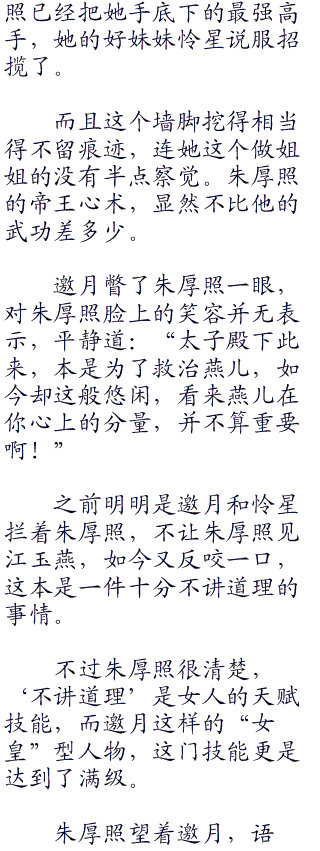 照已经把她手底下的最强高
手，她的好妹妹怜星说服招
揽了。
而且这个墙脚挖得相当
得不留痕迹，连她这个做姐
姐的没有半点察觉。朱厚照
的帝王心术，显然不比他的
武功差多少。
邀月瞥了朱厚照一眼，
对朱厚照脸上的笑容并无表
示，平静道：“太子殿下此
来，本是为了救治燕儿，如
今却这般悠闲，看来燕儿在
你心上的分量，并不算重要
啊！”
之前明明是邀月和怜星
拦着朱厚照，不让朱厚照见
江玉燕，如今又反咬一口，
这本是一件十分不讲道理的
事情。
不过朱厚照很清楚，
‘不讲道理’是女人的天赋
技能，而邀月这样的“女
皇”型人物，这门技能更是
达到了满级。
朱厚照望着邀月，语